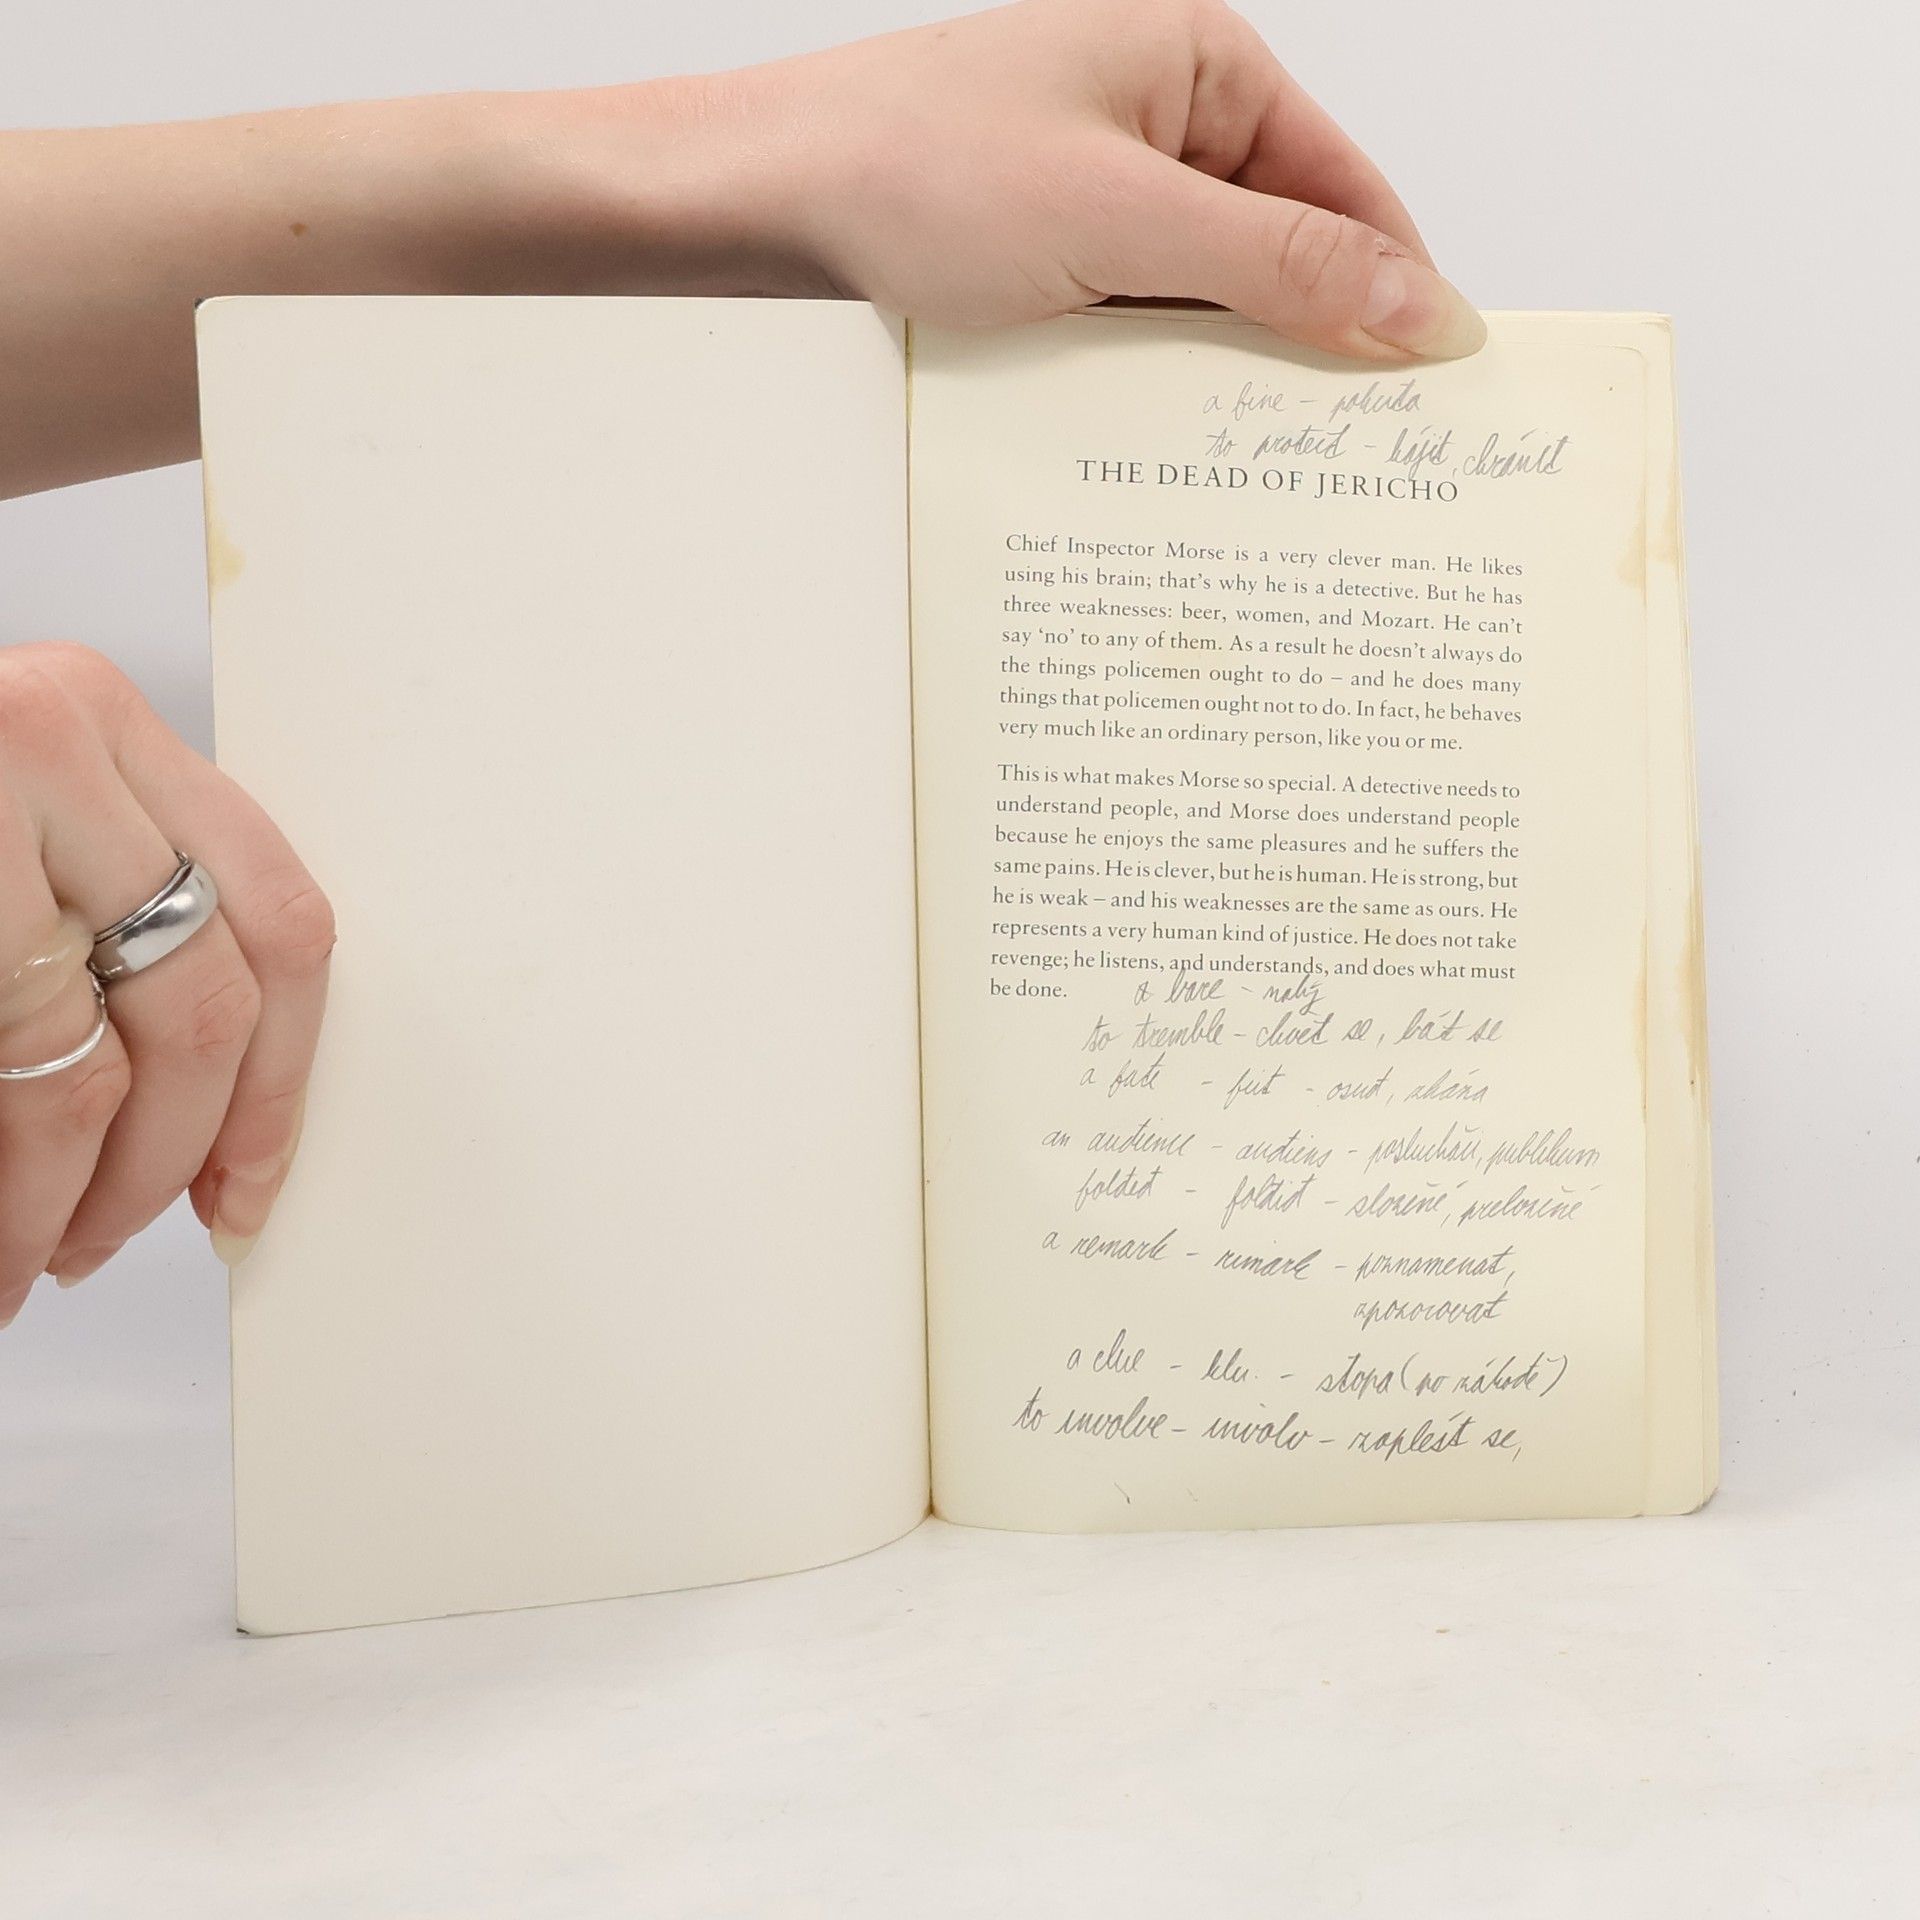 a fine – pokuta
to protect – hájit, chránit
THE DEAD OF JERICHO
Chief Inspector Morse is a very clever man. He likes
using his brain; that's why he is a detective. But he has
three weaknesses: beer, women, and Mozart. He can't
say 'no' to any of them. As a result he doesn't always do
the things policemen ought to do – and he does many
things that policemen ought not to do. In fact, he behaves
very much like an ordinary person, like you or me.
This is what makes Morse so special. A detective needs to
understand people, and Morse does understand people
because he enjoys the same pleasures and he suffers the
same pains. He is clever, but he is human. He is strong, but
he is weak – and his weaknesses are the same as ours. He
represents a very human kind of justice. He does not take
revenge; he listens, and understands, and does what must
be done.
a bare – nahý
to tremble – chvět se, bát se
a fate – feit – osud, zkáza
an audience – audiens – posluchači, publikum
folded – foldid – složené, přeložené
a remark – rimark – poznamenat,
zpozorovat
a clue – klu: – stopa (po záhadě)
to involve – involv – zaplést se,